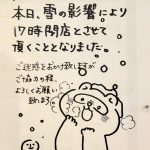 本日、雪の影響により
17時閉店とさせて
頂くこととなりました。
ご迷惑をおかけ致しますが
ご協力の程、
よろしくお願い
致します